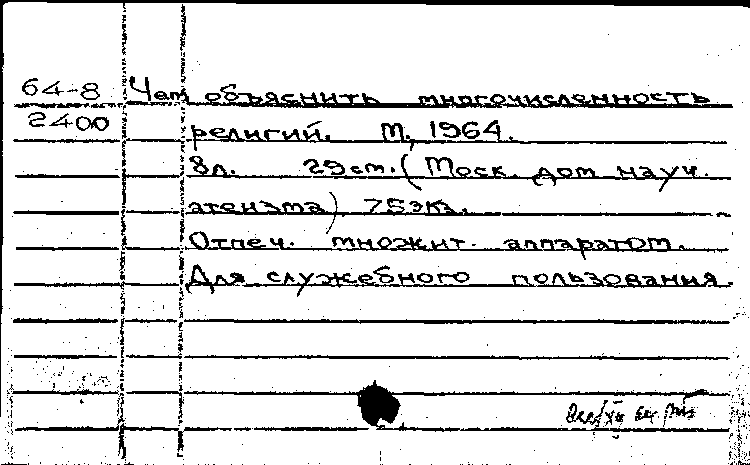 64-8 Чем объяснить многочисленность
2400 религий. М., 1964.
8л. 29см. (Моск. дом науч.
атеизма) 75экз.
Отпеч. множит. аппаратом.
Для служебного пользования.